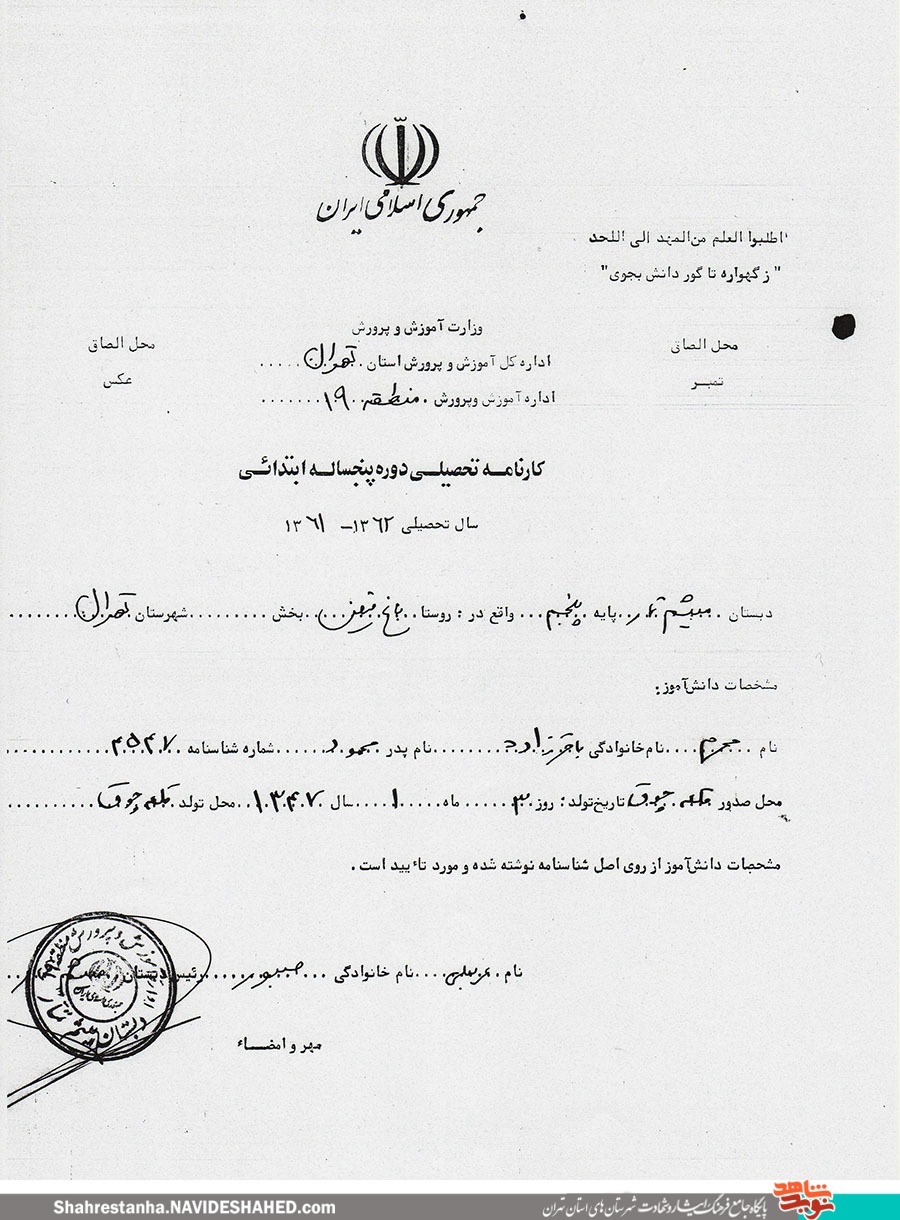 جمهوری اسلامی ایران
"اطلبوا العلم من المهد الی اللحد
"ز گهواره تا گور دانش بجوی"
وزارت آموزش و پرورش
محل الصاق
تمبر
محل الصاق
عکس
اداره کل آموزش و پرورش استان تهران
اداره آموزش وپرورش منطقه ۱۹
کارنامه تحصیلی دوره پنجساله ابتدائی
سال تحصیلی ۱۳۶۲ - ۱۳۶۱
دبستان میثم تمار پایه پنجم واقع در : روستا باغ بخش شهرستان تهران
مشخصات دانش‌آموز:
نام محرم نام خانوادگی نام پدر محمود شماره شناسنامه ۴۵۴۷
محل صدور قلعه چوق تاریخ تولد : روز ۳ ماه ۱ سال ۱۳۴۷ محل تولد قلعه چوق
مشخصات دانش‌آموز از روی اصل شناسنامه نوشته شده و مورد تأیید است .
نام نام خانوادگی رئیس دبستان
مهر و امضاء
اداره آموزش و پرورش منطقه ۱۹ تهران
جمهوری اسلامی ایران
دبستان میثم تمار
Shahrestanha.NAVIDESHAHED.com
پایگاه جامع فرهنگ ایثار و شهادت شهرستان های استان تهران
نوید شاهد